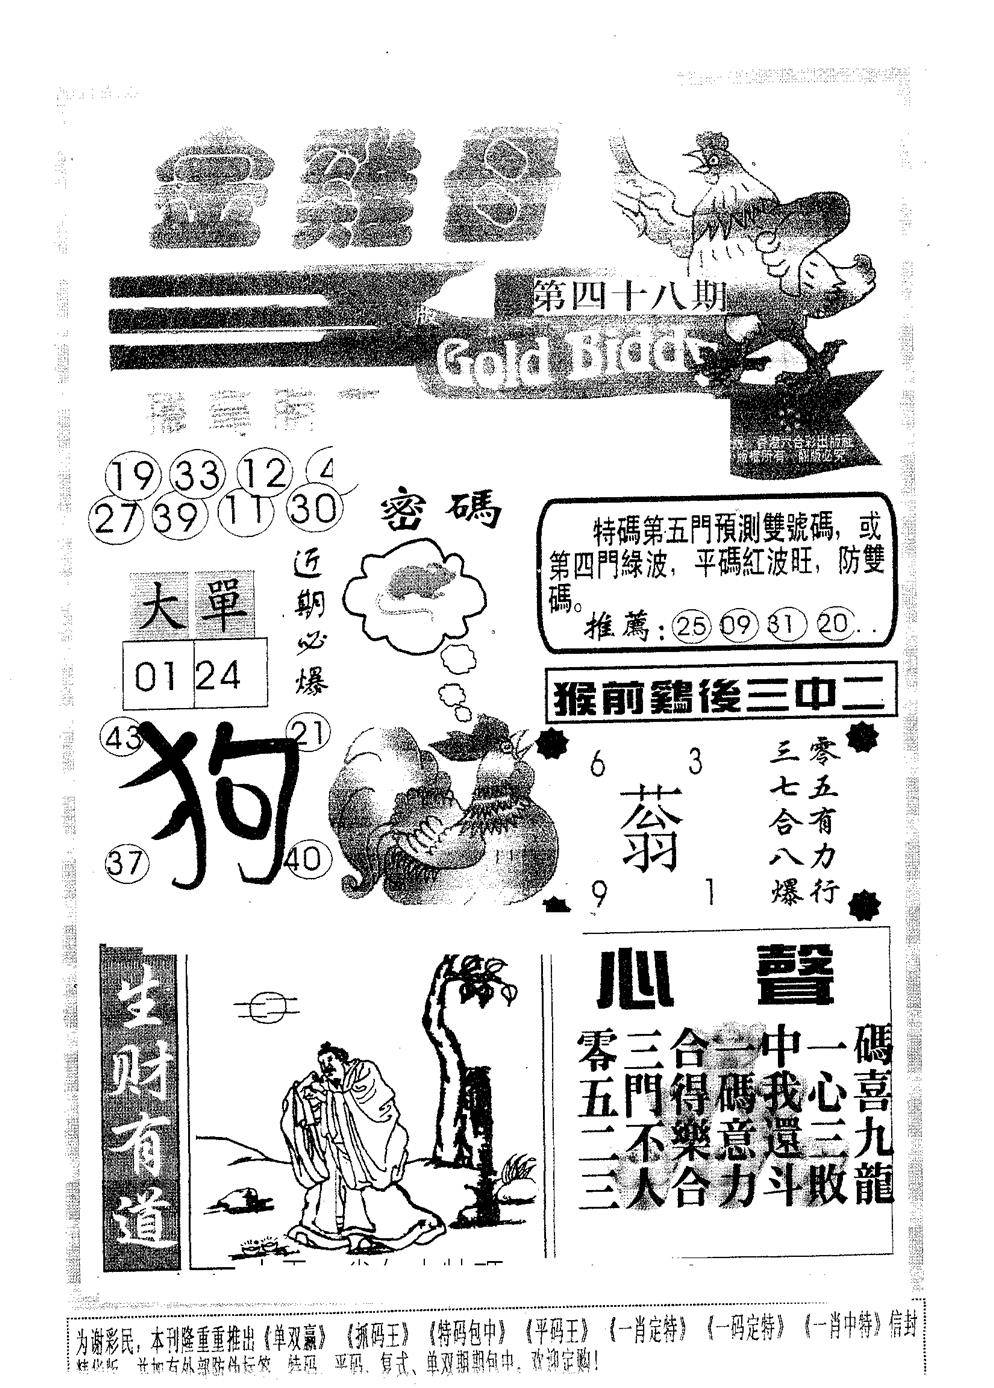 金雞母
第四十八期
Gold Biddy
香港六合彩出版社
版權所有 翻版必究
19 33 12 4
27 39 11 30
密碼
近期必爆
大單
01 24
特碼第五門預測雙號碼，或
第四門綠波，平碼紅波旺，防雙
碼。
推薦：25 09 31 20..
猴前鷄後三中二
43 21
狗
37 40
6 3
蓊
9 1
零五有力行
三七合八爆
生财有道
心聲
零三合一中一碼
五門得碼我心喜
二不樂意還三九
三人合力斗敗龍
为谢彩民，本刊隆重重推出《单双赢》《抓码王》《特码包中》《平码王》《一肖定特》《一码定特》《一肖中特》信封
精华版，并加有外部防伪标签，特码、平码、复式、单双期期包中，欢迎定购！